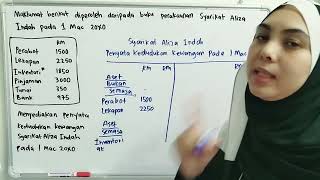 Maklumat berikut diperoleh daripada buku perakaunan Syarikat Aliza
Indah pada 1 Mac 20X0
RM
Perabot 1500
Lekapan 2250
Inventori 1850
Pinjaman 3000
Tunai 350
Bank 975
Menyediakan Penyata
Kedudukan Kewangan
Syarikat Aliza Indah
pada 1 Mac 20X0
Syarikat Aliza Indah
Penyata Kedudukan Kewangan Pada 1 Mac
RM RM
Aset
Bukan
Semasa
Perabot 1500
Lekapan 2250
Aset
Semasa
Inventori